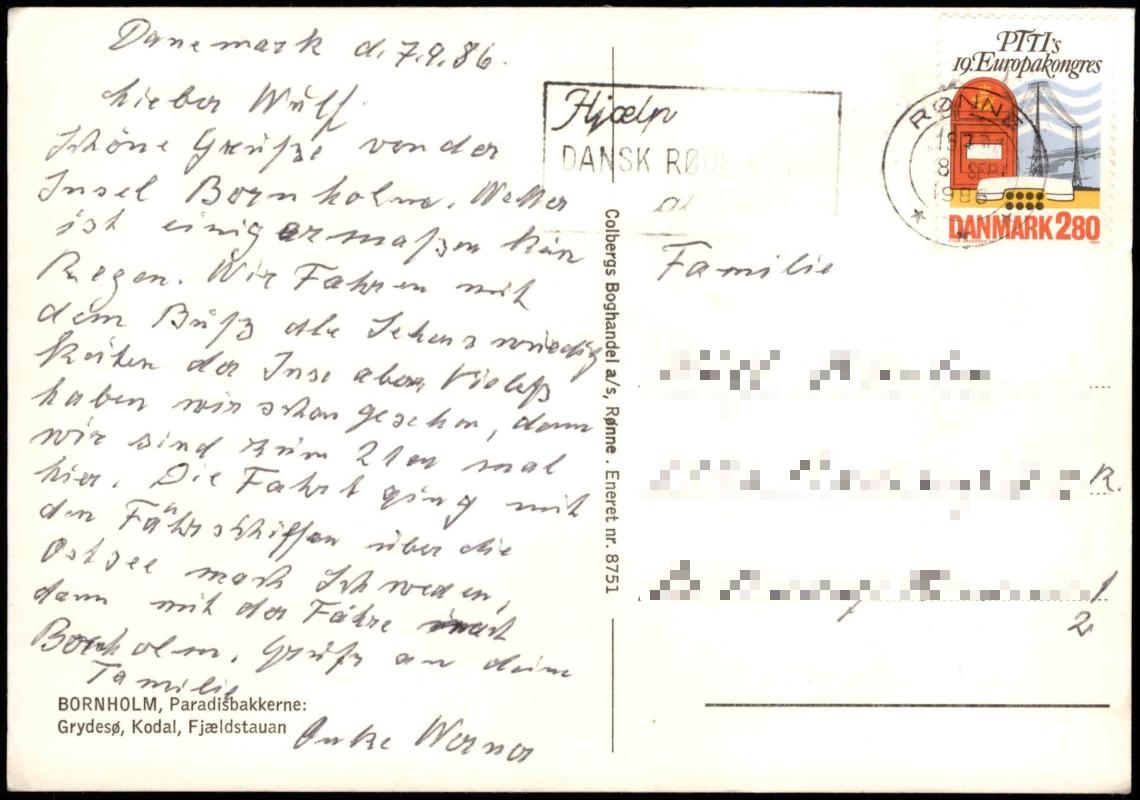 Danemark d. 7.9.86.
Lieber Wulf.
Schöne Grüße von der
Insel Bornholm. Wetter
ist einigermaßen kein
Regen. Wir Fahren mit
dem Buß die Sehenswürdig
keiten der Inse aber Vieleß
haben wir schon gesehen, denn
wir sind zum 2ten mal
hier. Die Fahrt ging mit
den Fährschiffen über die
Ostsee nach Schweden,
dann mit der Fähre nach
Bornholm. Gruß an deine
Familie
Onke Werner
BORNHOLM, Paradisbakkerne:
Grydesø, Kodal, Fjældstauan
Colbergs Boghandel a/s, Rønne . Eneret nr. 8751
Hjælp
DANSK RØDE
RØNNE
8 SEP
1986
PTTI's
19. Europakongres
DANMARK 280
Familie
R.
1
2